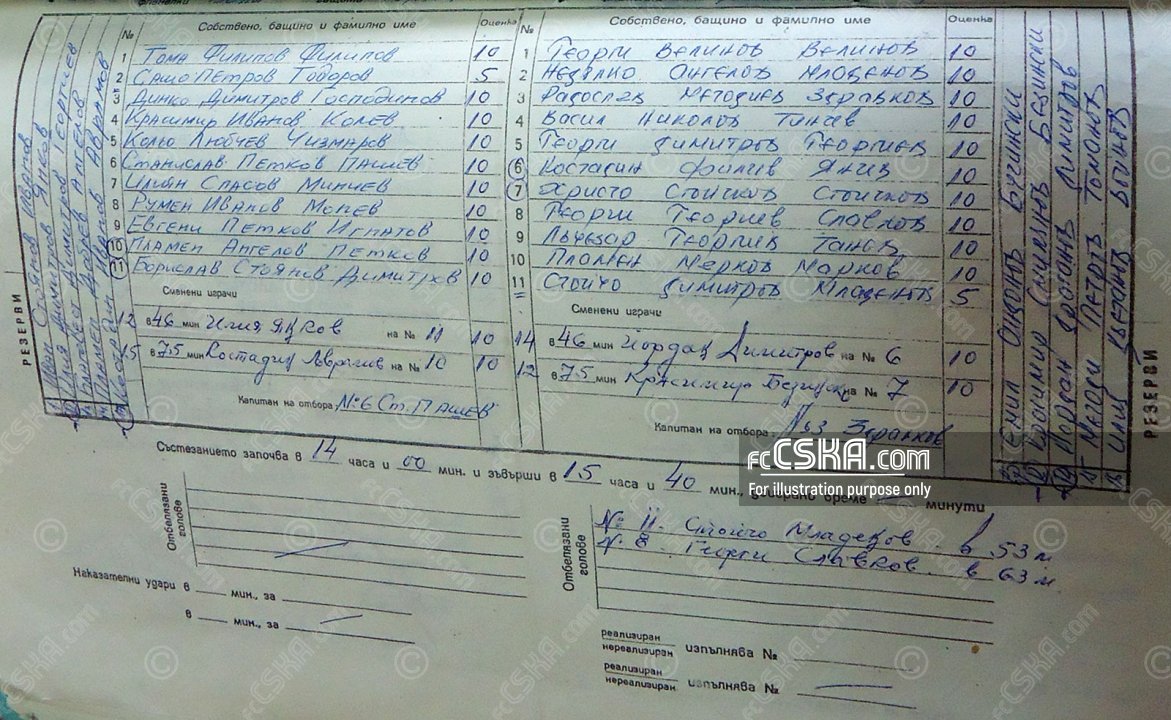 № Собствено, бащино и фамилно име Оценка
1 Тома Филипов Филипов 10
2 Сашо Петров Тодоров 5
3 Динко Димитров Господинов 10
4 Красимир Иванов Колев 10
5 Кольо Любчев Чизмаров 10
6 Станислав Петков Пашев 10
7 Илиян Спасов Минчев 10
8 Румен Иванов 10
9 Евгени Петков Игнатов 10
10 Пламен Ангелов Петков 10
11 Борислав Стоянов Димитров 10
Сменени играчи
12 в 46 мин Илия Янков на № 11 10
15 в 75 мин Костадин на № 10 10
Капитан на отбора №6 Ст. Пашев
РЕЗЕРВИ
Иван Стоянов Иванов
Илия Димитров Янков
Димитров Георгиев
Пламен Добрев Ангелов
№ Собствено, бащино и фамилно име Оценка
1 Георги Велинов Велинов 10
2 Недялко Ангелов Младенов 10
3 Радослав Методиев Здравков 10
4 Васил Николов Танев 10
5 Георги Димитров Георгиев 10
6 Костадин Филип Янчев 10
7 Христо Стоичков Стоичков 10
8 Георги Георгиев Славков 10
9 Лъчезар Георгиев Танев 10
10 Пламен Марков Марков 10
11 Стойчо Димитров Младенов 5
Сменени играчи
14 в 46 мин Йордан Димитров на № 6 10
12 в 75 мин Красимир Безински на № 7 10
Капитан на отбора №3 Здравков
Емил Бучински
Красимир Безински
Йордан Йорданов Димитров
Методи Петров Томанов
Илия Цветанов Войнов
РЕЗЕРВИ
Състезанието започва в 14 часа и 00 мин. и завърши в 15 часа и 40 мин., време — минути
fcCSKA.com
For illustration purpose only
Отбелязани голове
Наказателни удари в мин., за
в мин., за
Отбелязани голове
№ 11. Стойчо Младенов в 53 м
№ 8 Георги Славков в 63 м
реализиран
нереализиран изпълнява №
реализиран
нереализиран изпълнява №